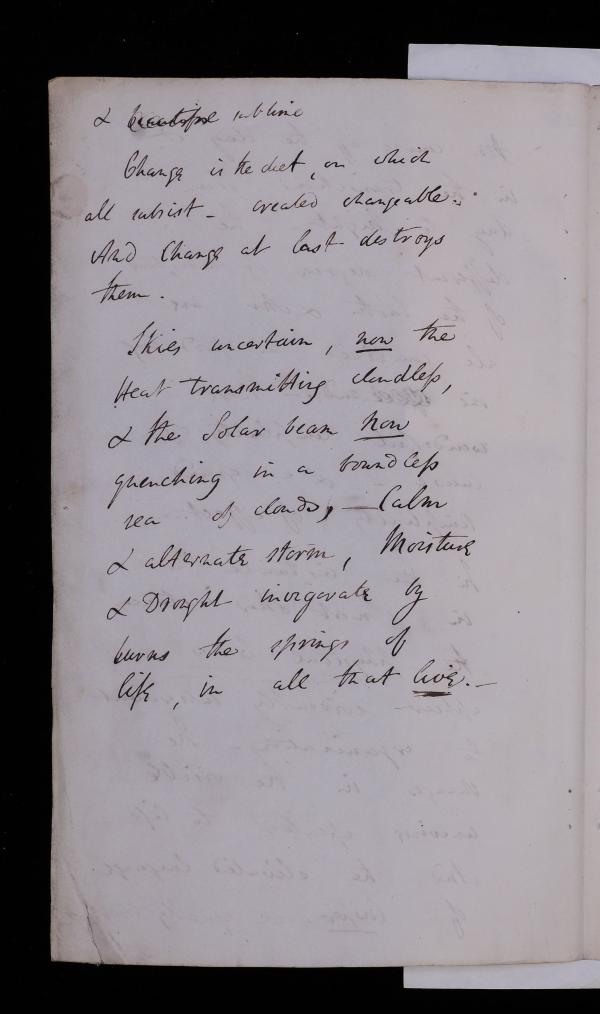 & beautiful sublime
Change is the diet, on which
all subsist - created changeable.
And Change at last destroys
them.
Skies uncertain, now the
Heat transmitting cloudless,
& the Solar beam now
quenching in a boundless
sea of clouds, - Calm
& alternate storm, Moisture
& Drought invigorate by
turns the springs of
life, in all that live. -